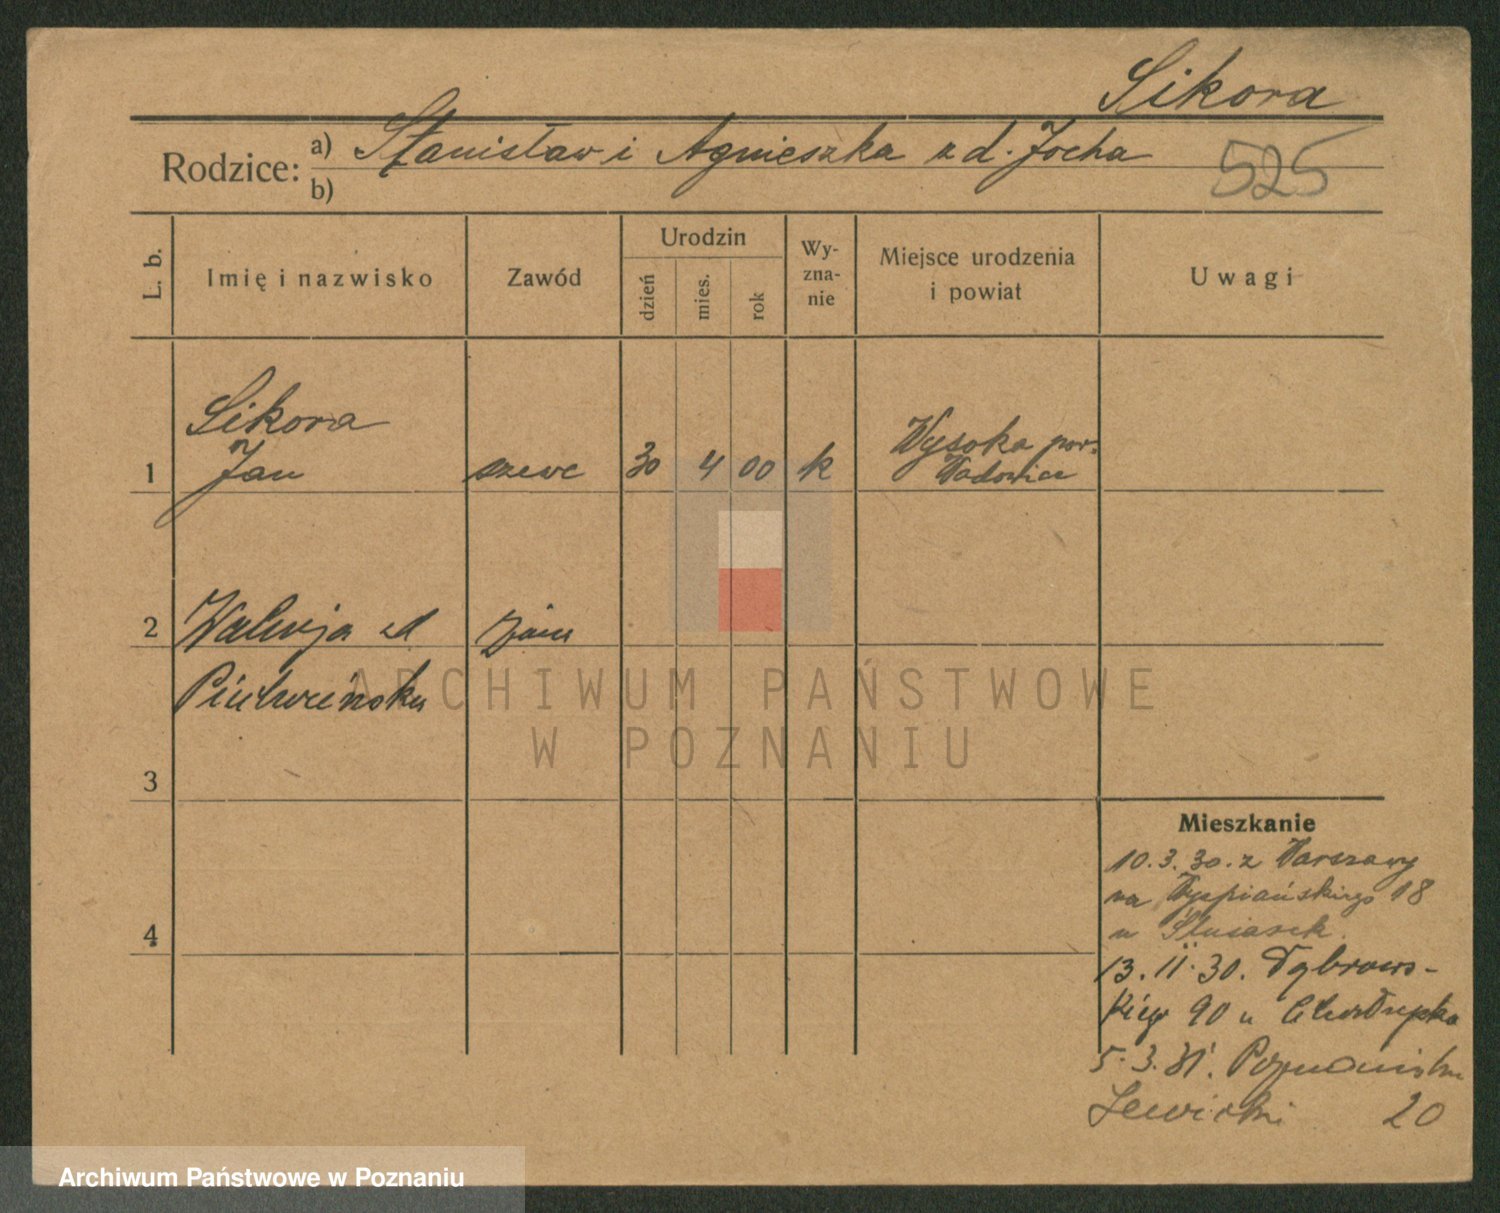 Sikora
Rodzice: a) Stanisław i Agnieszka z d. Jocha
b)
525
L. b.
Imię i nazwisko
Zawód
Urodzin
dzień
mies.
rok
Wy-
zna-
nie
Miejsce urodzenia
i powiat
Uwagi
Sikora
1 Jan szewc 30 4 00 k Wysoka pow.
Wadowice
2 Walerja zd żona
3
4
Mieszkanie
10.3.30. z Warszawy
na Wyspiańskiego 18
u
13.11.30. Dąbrows-
kiego 90 u
5.3.31. Poznańska
20
ARCHIWUM PAŃSTWOWE
W POZNANIU
Archiwum Państwowe w Poznaniu